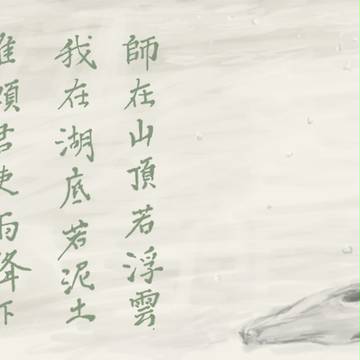 師在山頂若浮雲
我在湖底若泥土
惟願君使雨降下